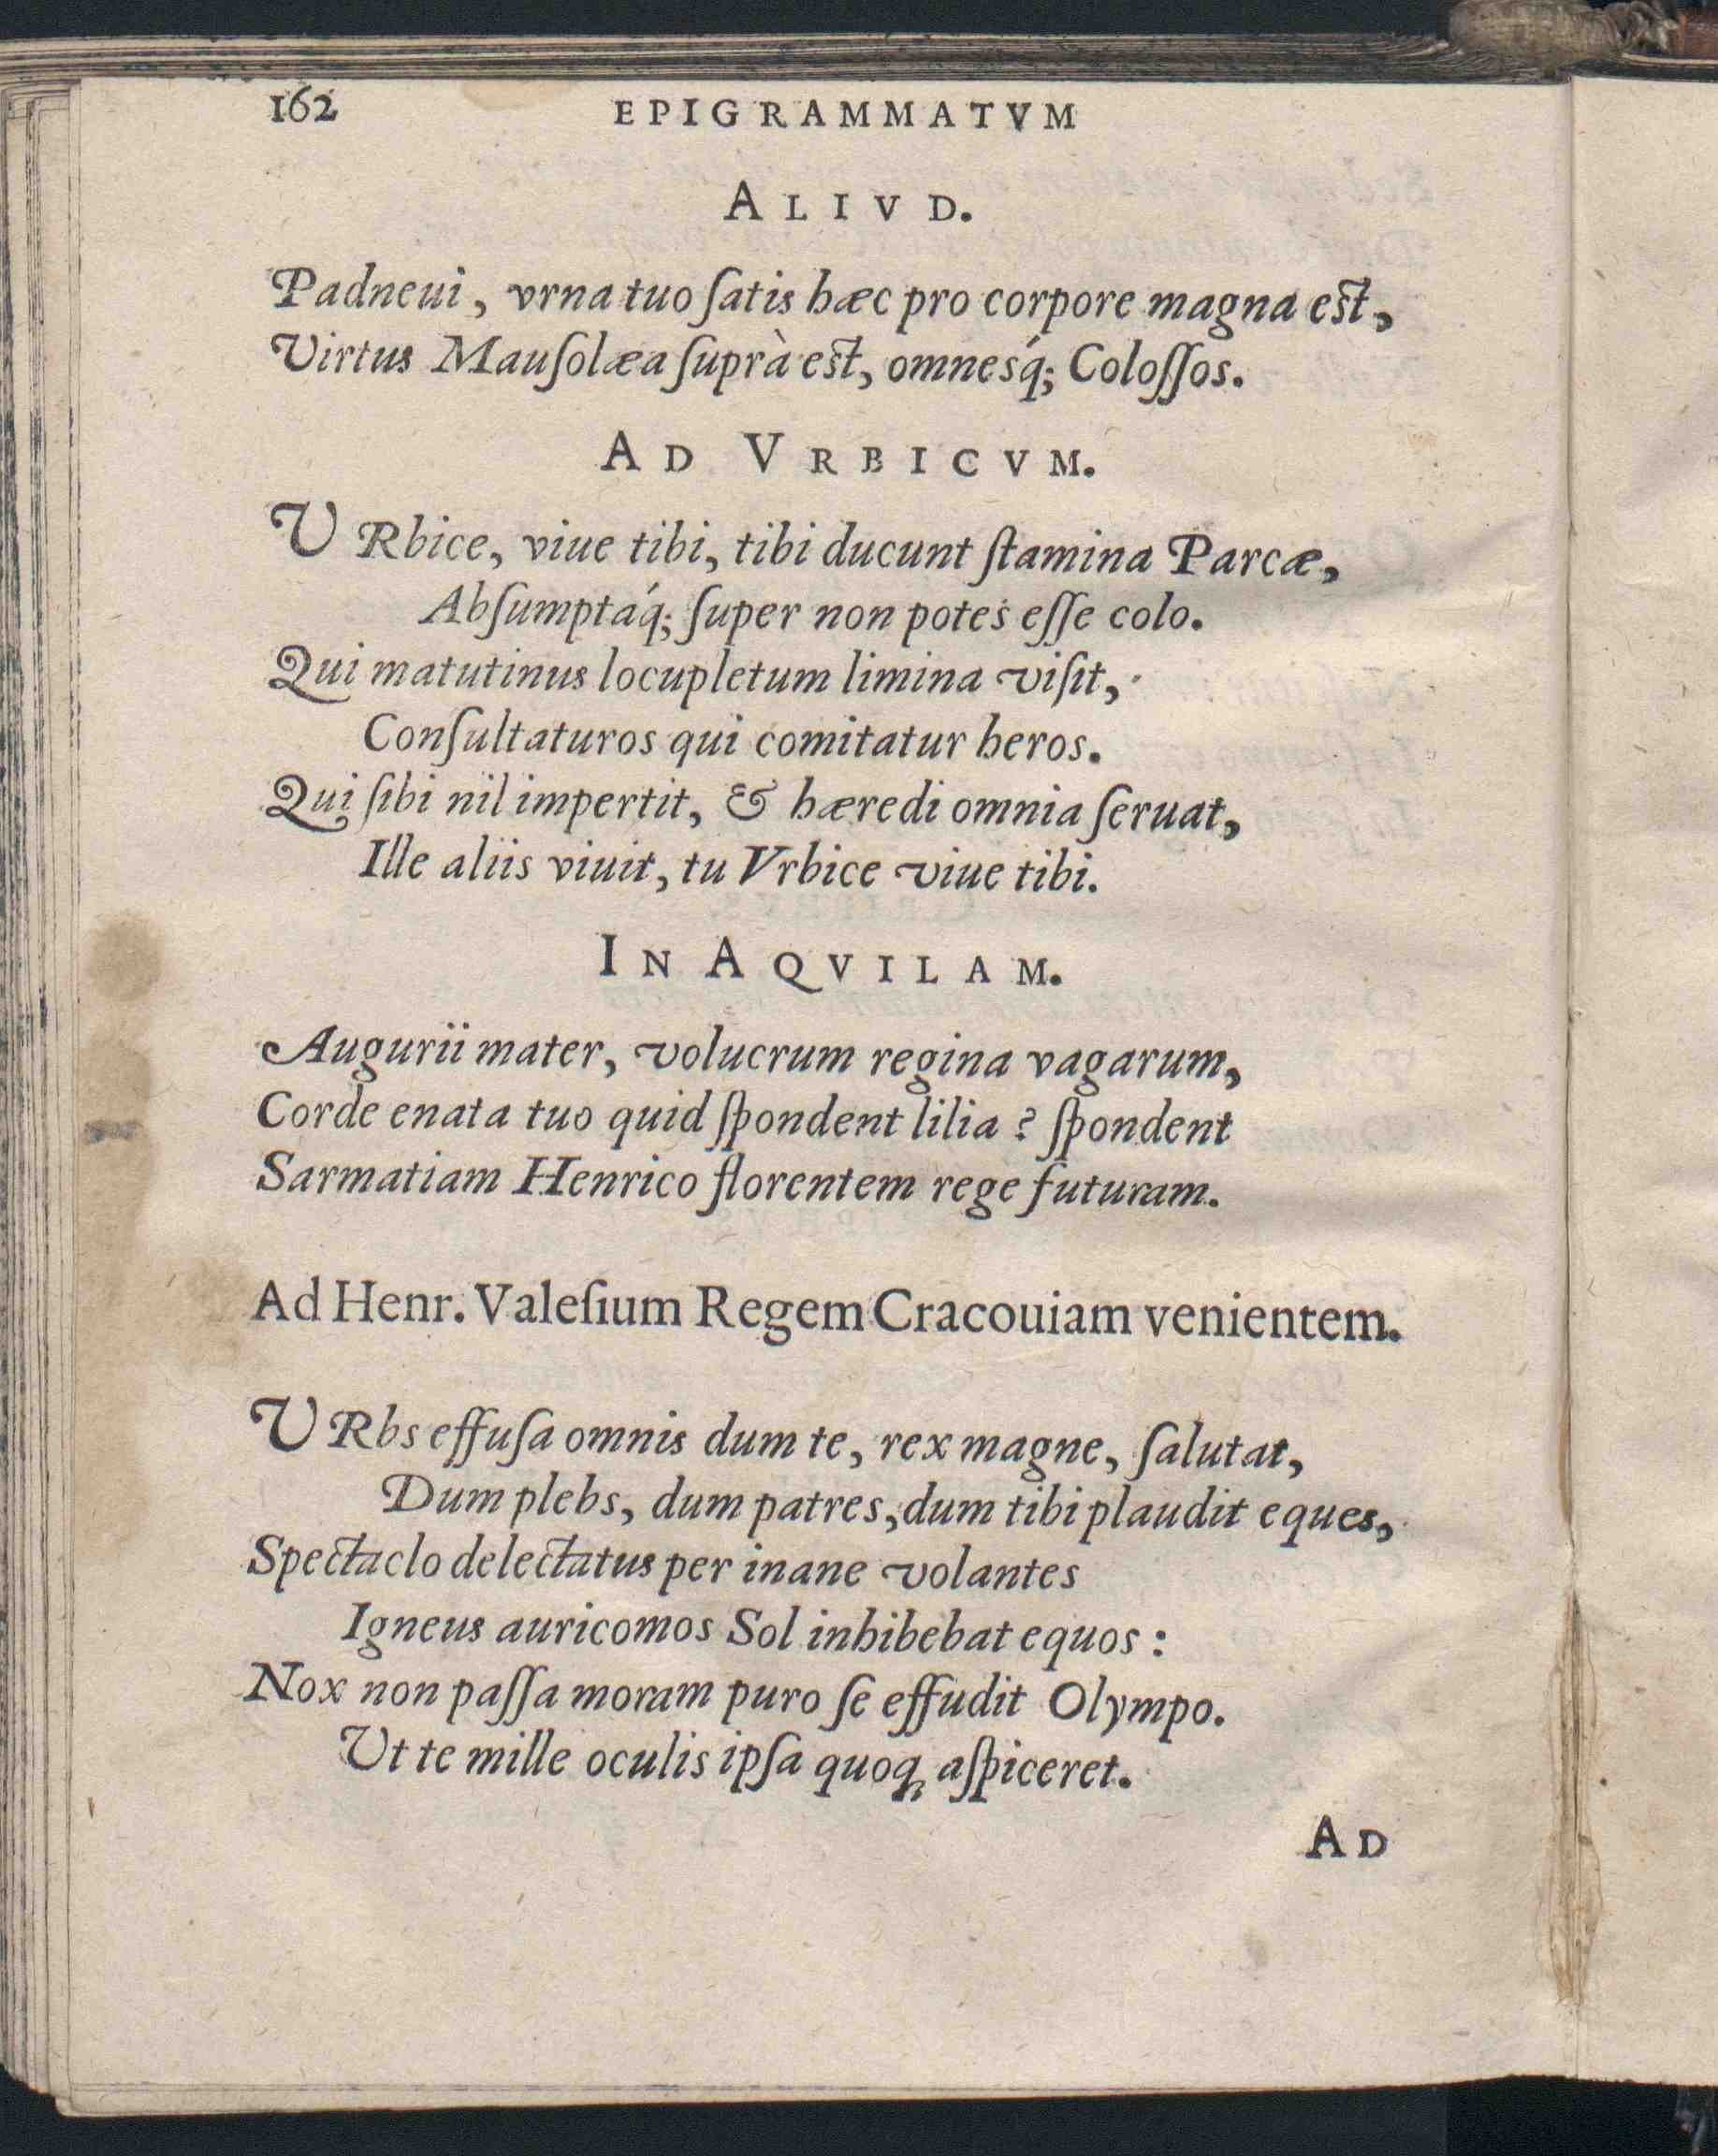 162 EPIGRAMMATVM
ALIVD.
Padneui, vrna tuo ſatis hæc pro corpore magna est,
Virtus Mauſolæa ſuprà est, omnesq́; Coloſſos.
AD VRBICVM.
URbice, viue tibi, tibi ducunt ſtamina Parcæ,
Abſumptáq; ſuper non potes eſſe colo.
Qui matutinus locupletum limina viſit,
Conſultaturos qui comitatur heros.
Qui ſibi nil impertit, & hæredi omnia ſeruat,
Ille aliis viuit, tu Vrbice viue tibi.
IN AQVILAM.
Augurii mater, volucrum regina vagarum,
Corde enata tuo quid ſpondent lilia? ſpondent
Sarmatiam Henrico florentem rege futuram.
Ad Henr. Valeſium Regem Cracouiam venientem.
URbs effuſa omnis dum te, rex magne, ſalutat,
Dum plebs, dum patres, dum tibi plaudit eques,
Spectaclo delectatus per inane volantes
Igneus auricomos Sol inhibebat equos:
Nox non paſſa moram puro ſe effudit Olympo.
Ut te mille oculis ipſa quoq; aſpiceret.
AD